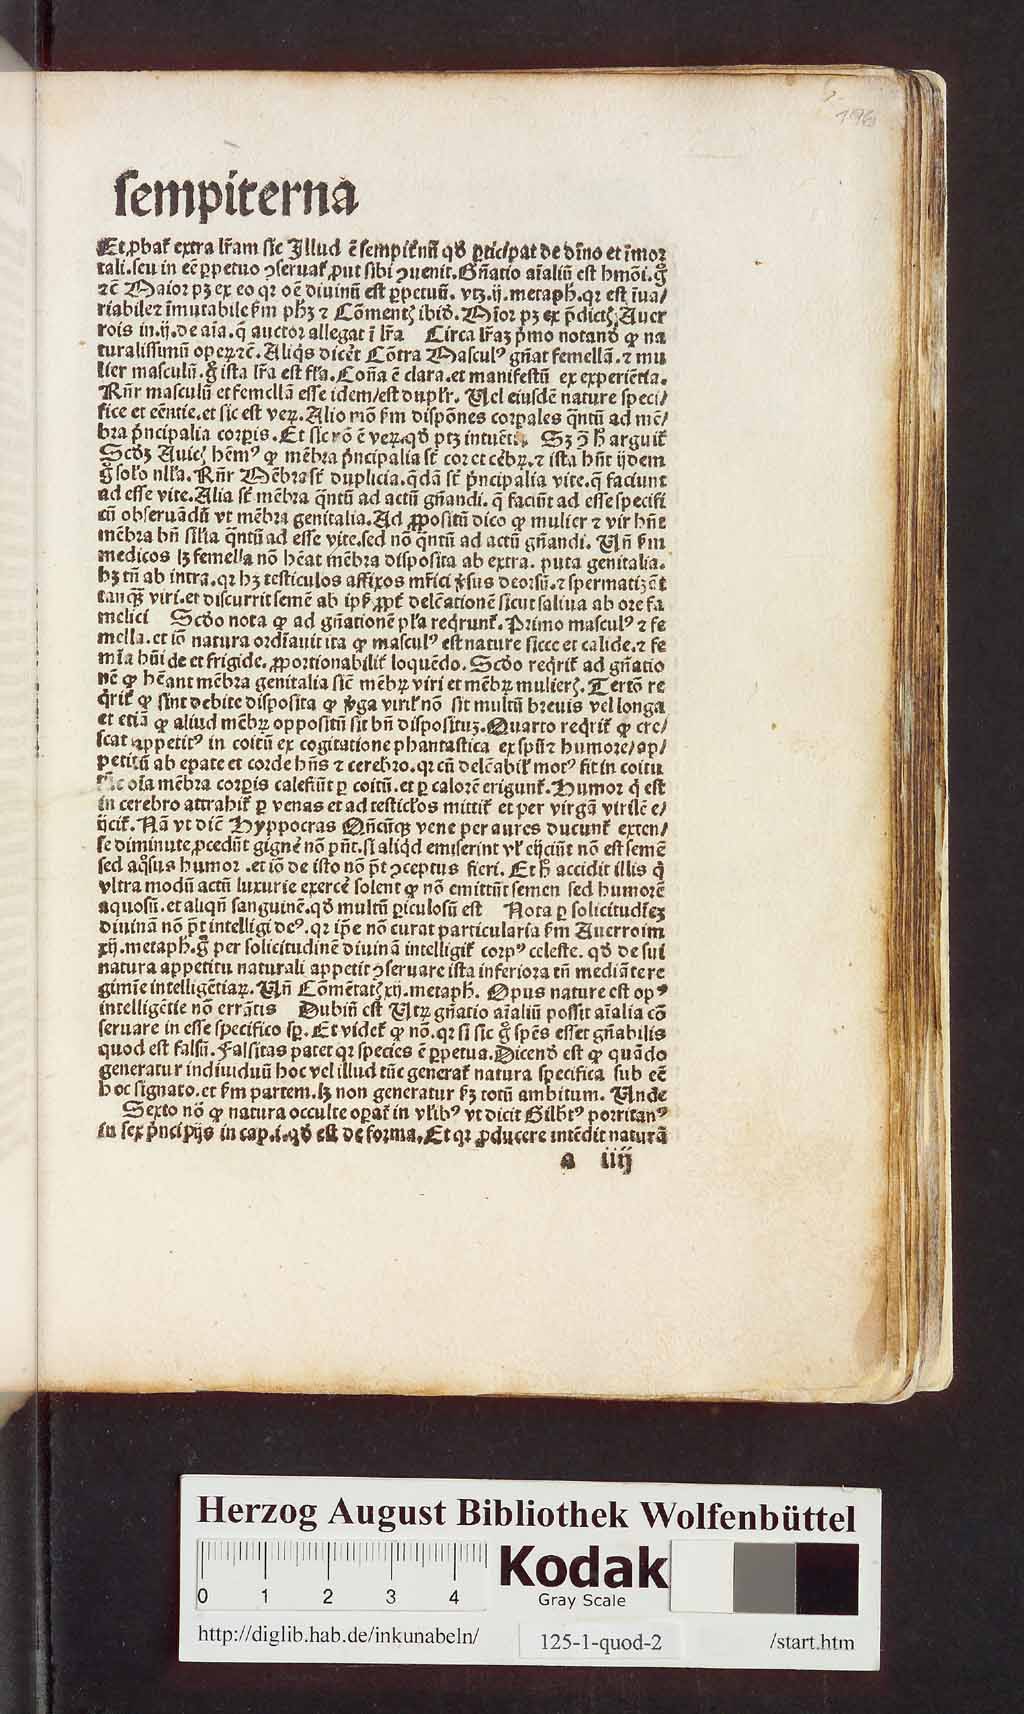 196
sempiterna
Et ꝓbat᷑ extra lr̃am sic Illud ẽ sempit᷑nũ qð ꝑticipat de diño et ĩmor
tali. seu in eẽ ꝑpetuo ꝯseruat᷑ ꝓut sibi ꝯuenit. Gñatio aĩaliũ est hmõi. gͦ
⁊cẽ Maior pꝫ ex eo qꝛ oẽ diuinũ est ꝑpetuũ. vtꝫ. ij. metapħ. qꝛ est ĩua/
riabile ⁊ ĩmutabile ẜm pħꝫ ⁊ Cõmentꝭ ibiđ. Mĩor pꝫ ex p̃dictꝭ Auer
rois in. ij. de aĩa. q̃ auctor allegat ĩ lr̃a Circa lr̃aꝫ pͥmo notanđ ꝙ na
turalissimũ operꝝ ⁊cẽ. Aliqͥs dicet᷑ Cõtra Masculꝰ gñat femellã. ⁊ mu
lier masculũ. gͦ ista lr̃a est fl̃a. Coña ẽ clara. et manifestũ ex experiẽtia.
Rñr masculũ et femellã esse idem/est duplr̃. Uel eiusdẽ nature speci/
fice et eẽntie. et sic est verꝝ. Alio mõ ẜm dispõnes corpales q̃ntũ ad mẽ/
bra pͥncipalia corꝑis. Et sic nõ ẽ verꝝ. qð ptꝫ intuẽti. Sꝫ ꝯͣ hͦ arguit᷑
Scđꝫ Auicꝭ hẽmꝰ ꝙ mẽbra pͥncipalia st᷑ cor et cẽbrꝝ. ⁊ ista hñt ijdem
gͦ solo nll̃a. Rñr Mẽbra st᷑ duplicia. q̃dã st᷑ pͥncipalia vite. q̃ faciunt
ad esse vite. Alia st᷑ mẽbra q̃ntũ ad actũ gñandi. q̃ faciũt ad esse specifi
cũ obseruãdũ vt mẽbra genitalia. Ad ꝓpositũ dico ꝙ mulier ⁊ vir hñt
mẽbra bñ sil̃ia q̃ntũ ad esse vite. sed nõ q̃ntũ ad actũ gñandi. Uñ ẜm
medicos lꝫ femella nõ hẽat mẽbra disposita ab extra. puta genitalia.
hꝫ tñ ab intra. qꝛ hꝫ testiculos affixos mr̃ici ṽsus deorsũ. ⁊ spermatizẽt
tanqͣꝫ viri. et discurrit semẽ ab ip̃is ꝓpt᷑ delc̃ationẽ sicut saliua ab ore fa
melici Scđo nota ꝙ ad gñationẽ pl̃a reqͥrunt᷑. Primo masculꝰ ⁊ fe
mella. et iõ natura ordĩauit ita ꝙ masculꝰ est nature sicce et calide. ⁊ fe
mĩa hũide et frigide. ꝓportionabilit᷑ loquẽdo. Scđo reqͥrit᷑ ad gñatio
nẽ ꝙ hẽant mẽbra genitalia sicẽ mẽbrꝝ viri et mẽbrꝝ mulierꝭ. Tertõ re
qͥrit᷑ ꝙ sint debite disposita ꝙ ṽga viril᷑ nõ sit multũ breuis vel longa
et etiã ꝙ aliud mẽbrꝝ oppositũ sit bñ dispositꝫ. Quarto reqͥrit᷑ ꝙ cre/
scat appetitꝰ in coitũ ex cogitatione phantastica ex spũ ⁊ humore/ap/
petitũ ab epate et corde hñs ⁊ cerebro. qꝛ cũ delc̃abil᷑ motꝰ fit in coitu
oĩa mẽbra corꝑis calefiũt ꝑ coitũ. et ꝑ calorẽ erigunt᷑. Humor qͥ est
in cerebro attrahit᷑ ꝑ venas et ad testicl̃os mittit᷑ et per virgã virilẽ e/
ijcit᷑. Nã vt dicẽ Hyppocras Qñcũqꝫ vene per aures ducunt᷑ exten/
se diminute ꝓcedũt gigne᷑ nõ pñt. si aliqͥd emiserint vl̃ eijciũt nõ est semẽ
sed aqͦsus humor. et iõ de isto nõ p̃t ꝯceptus fieri. Et hͦ accidit illis qͥ
vltra modũ actũ luxurie exerce᷑ solent ꝙ nõ emittũt semen sed humorẽ
aquosũ. et aliqñ sanguinẽ. qð multũ ꝑiculosũ est Nota ꝑ solicitudĩeꝫ
diuinã nõ p̃t intelligi deꝰ. qꝛ ip̃e nõ curat particularia ẜm Auerroim
xij. metapħ. gͦ per solicitudinẽ diuinã intelligit᷑ corpꝰ celeste. qð de sui
natura appetitu naturali appetit ꝯseruare ista inferiora tñ mediãte re
gimĩe intelligẽtiaꝝ. Uñ Cõmẽtatꝭ xij. metapħ. Opus nature est opꝰ
intelligẽtie nõ errãtis Dubiũ est Utꝝ gñatio aĩaliũ possit aĩalia cõ
seruare in esse specifico sp̃. Et videt᷑ ꝙ nõ. qꝛ si sic gͦ spẽs esset gñabilis
quod est falsũ. Falsitas patet qꝛ species ẽ ꝑpetua. Dicenđ est ꝙ quãdo
generatur indiuiduũ hoc vel illud tũc generat᷑ natura specifica sub eẽ
hoc signato. et ẜm partem. lꝫ non generatur ẜꝫ totũ ambitum. Unde
Sexto nõ ꝙ natura occulte oꝑat᷑ in vl̃ibꝰ vt dicit Gilbt᷑ꝰ porritanꝰ
in sex pͥncipijs in cap. i. qð est de forma. Et qꝛ ꝓducere intẽdit naturã
a iiij
Herzog August Bibliothek Wolfenbüttel
0 1 2 3 4
Kodak
Gray Scale
http://diglib.hab.de/inkunabeln/ 125-1-quod-2 /start.htm